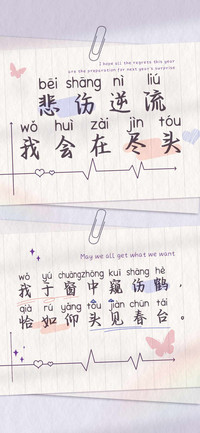 I hope all the regrets this year
are the preparation for next year's surprise
bēi shāng nì liú
悲伤逆流
wǒ huì zài jìn tóu
我会在尽头
May we all get what we want
wǒ yú chuāngzhōng kuī shāng hè
我于窗中窥伤鹤，
qià rú yǎng tóu jiàn chūn tái
恰如仰头见春台。